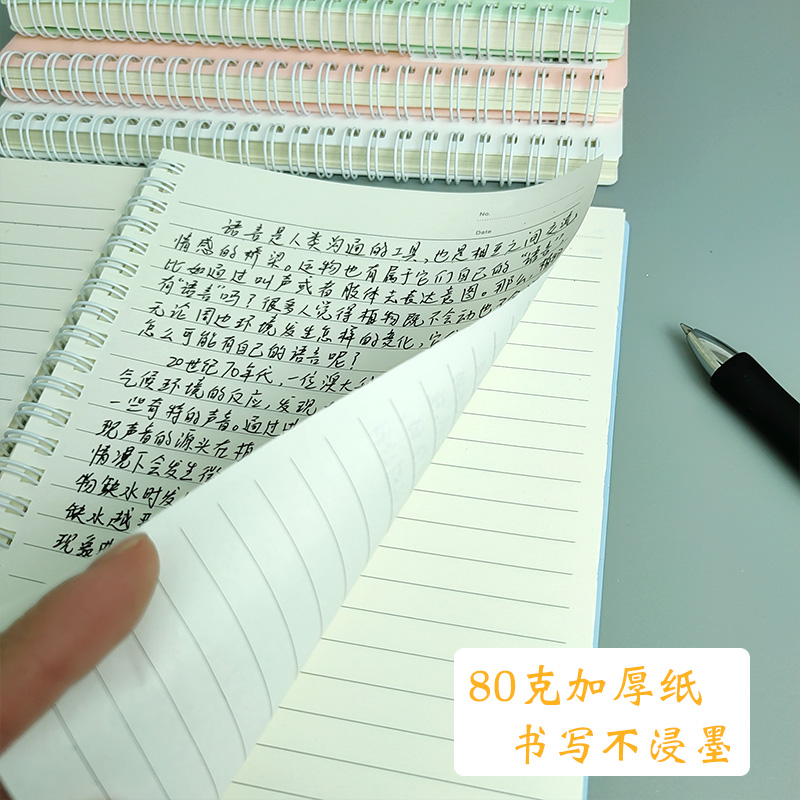 No.
Date
语言是人类沟通的工具,也是相互之间交流
情感的桥梁。动物也有属于它们自己的“语言”,
比如通过叫声或者肢体去表达意图。那么,植物
有“语言”吗?很多人觉得植物既不会动也不
无论周边环境发生怎样的变化,它
怎么可能有自己的语言呢?
20世纪70年代,一位澳大
气候环境的反应,发现
一些奇特的声音。通过
现声音的源头在植
情况下会发生
物缺水时发
缺水越
现象
80克加厚纸
书写不浸墨